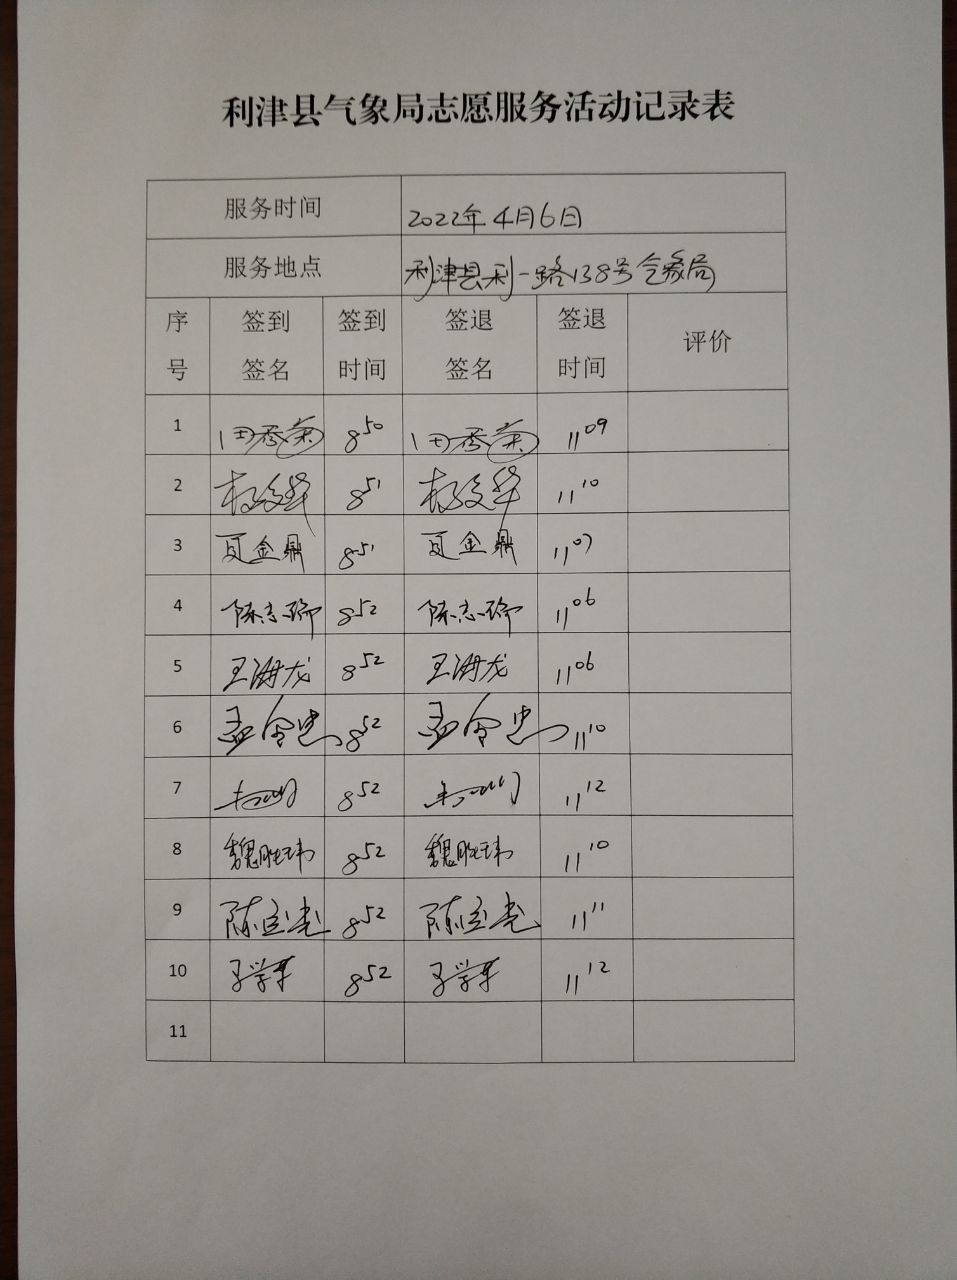 利津县气象局志愿服务活动记录表
服务时间 2022年4月6日
服务地点 利津县利一路138号气象局
序号 签到签名 签到时间 签退签名 签退时间 评价
1 田秀菊 8 50 田秀菊 11 09
2 8 51 11 10
3 8 51 11 07
4 陈志瑞 8 52 陈志瑞 11 06
5 王海龙 8 52 王海龙 11 06
6 孟令忠 8 52 孟令忠 11 10
7 8 52 11 12
8 魏胜玮 8 52 魏胜玮 11 10
9 陈立光 8 52 陈立光 11 11
10 8 52 11 12
11